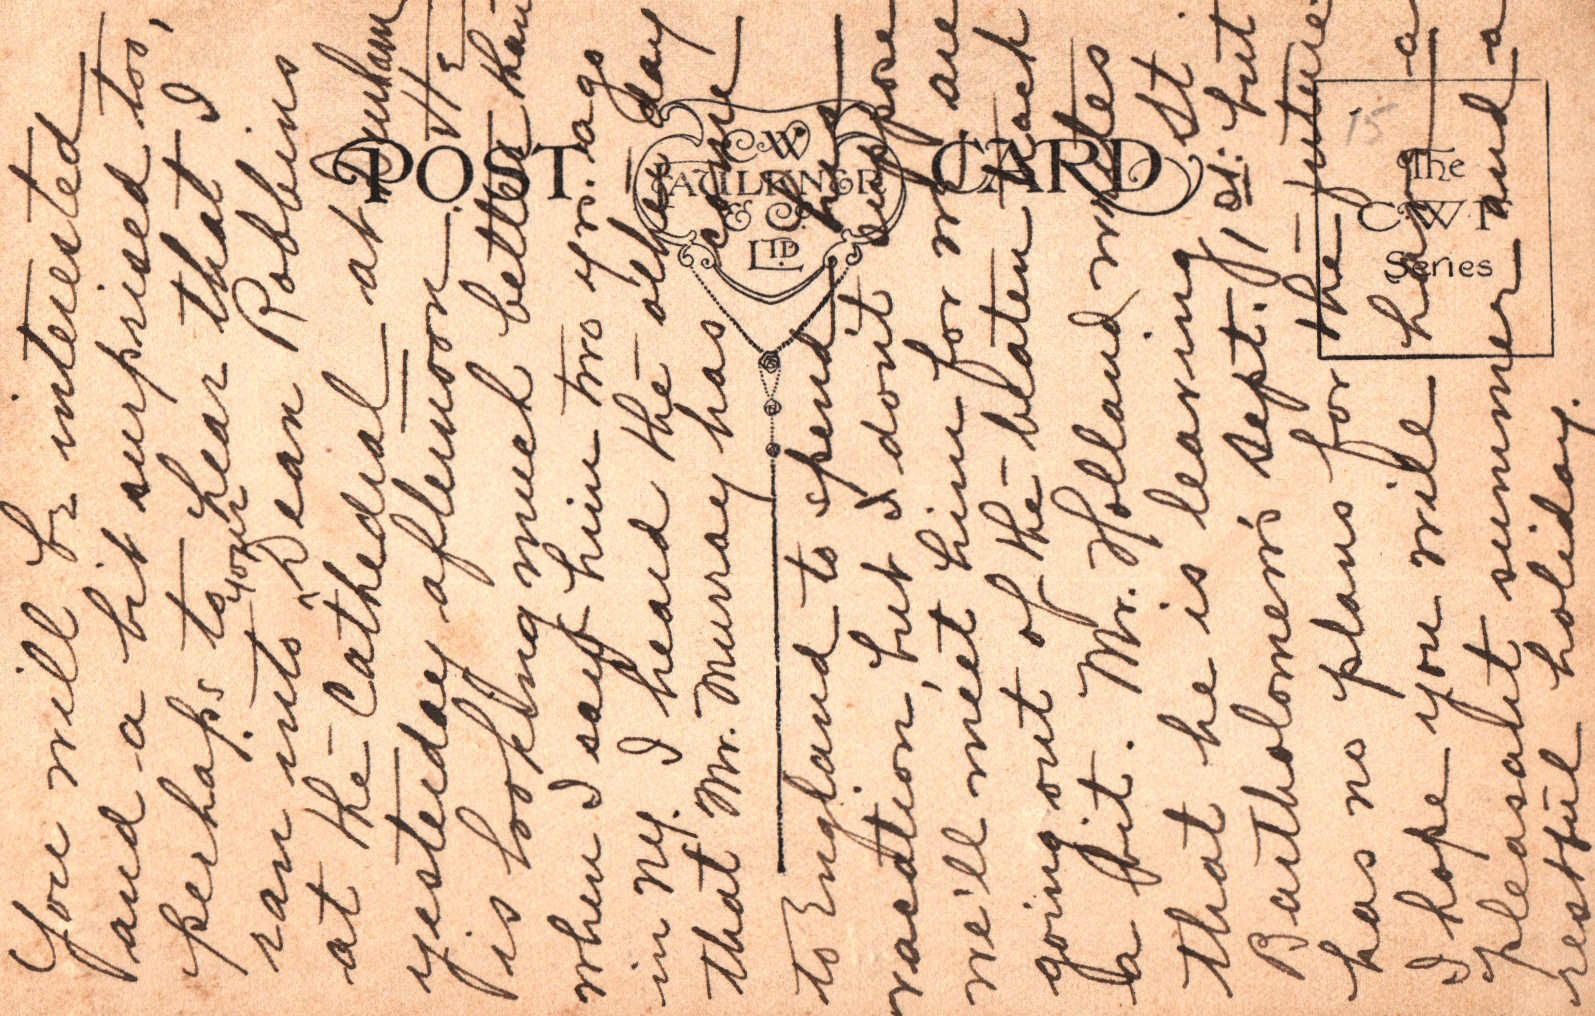 You will be interested
and a bit surprised too,
perhaps to hear that I
ran into your Dean Robbins
at the Cathedral at Durham
yesterday afternoon. He
is looking much better than
when I saw him two yrs. ago
in NY. I heard the other day
that Mr. Murray has come
to England to spend his
vacation, but I dont suppose
we'll meet him for we are
going out of the beaten track
a bit. Mr. Holland writes
that he is leaving St
Bartholomew's Sept. 1st. but
has no plans for the future
I hope you will have a
pleasant summer and a
restful holiday.
POST CARD
C W
FAULKNER
& Co.
LTD
The
C.W.F
Series
15